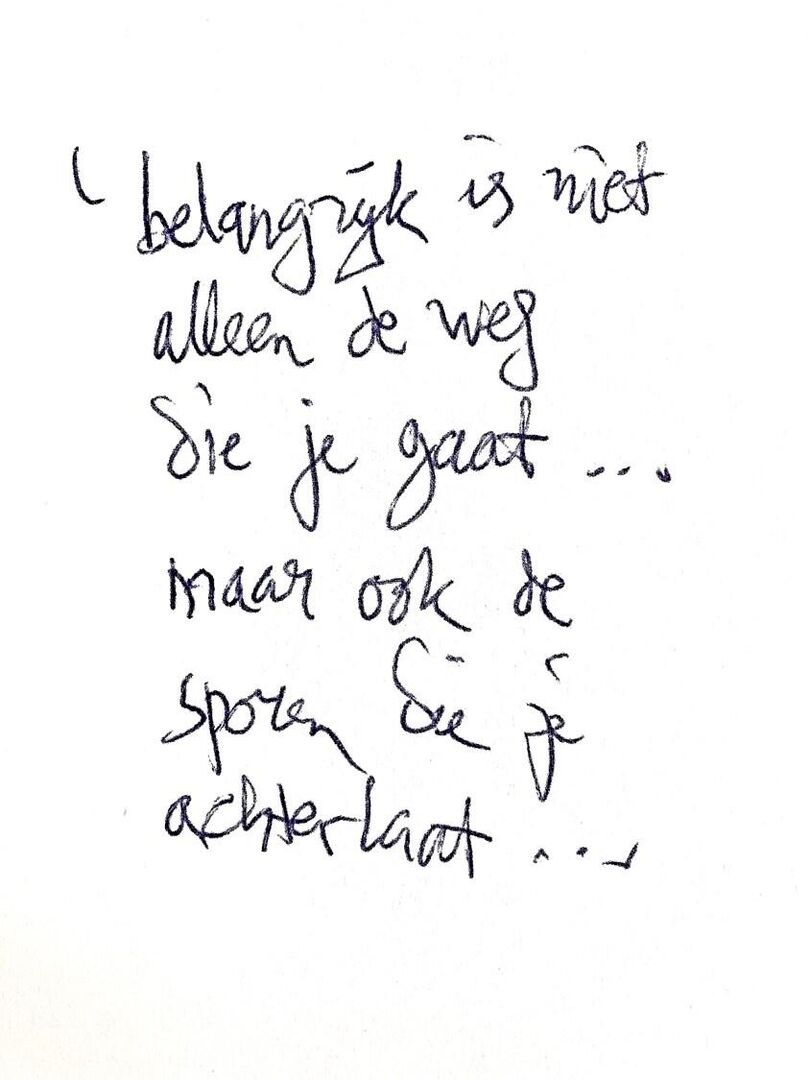 ' belangrijk is niet
alleen de weg
die je gaat ...
maar ook de
sporen die je
achterlaat ...